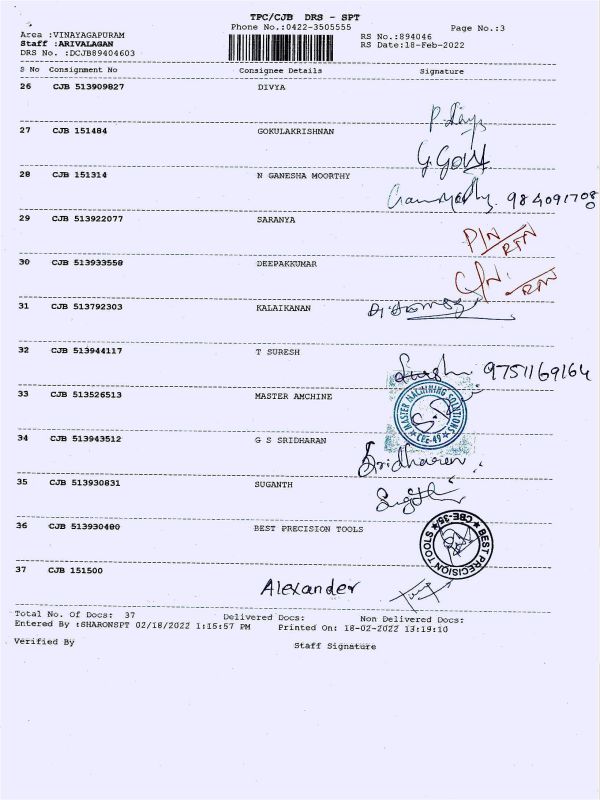 TPC/CJB DRS - SPT
Phone No.:0422-3505555
Page No.:3
Area :VINAYAGAPURAM
RS No.:894046
Staff :ARIVALAGAN
RS Date:18-Feb-2022
DRS No. :DCJB89404603
S No Consignment No Consignee Details Signature
26 CJB 513909827 DIVYA
27 CJB 151484 GOKULAKRISHNAN
28 CJB 151314 N GANESHA MOORTHY
9840917080
29 CJB 513922077 SARANYA
P/N
RTN
30 CJB 513933558 DEEPAKKUMAR
RTN
31 CJB 513792303 KALAIKANAN
32 CJB 513944117 T SURESH
9751169164
33 CJB 513526513 MASTER AMCHINE
MASTER MACHINING SOLUTIONS
CBE-49
34 CJB 513943512 G S SRIDHARAN
Sridharan
35 CJB 513930831 SUGANTH
36 CJB 513930480 BEST PRECISION TOOLS
BEST PRECISION TOOLS
CBE-35
37 CJB 151500
Alexander
Total No. of Docs: 37 Delivered Docs: Non Delivered Docs:
Entered By :SHARONSPT 02/18/2022 1:15:57 PM Printed On: 18-02-2022 13:19:10
Verified By Staff Signature